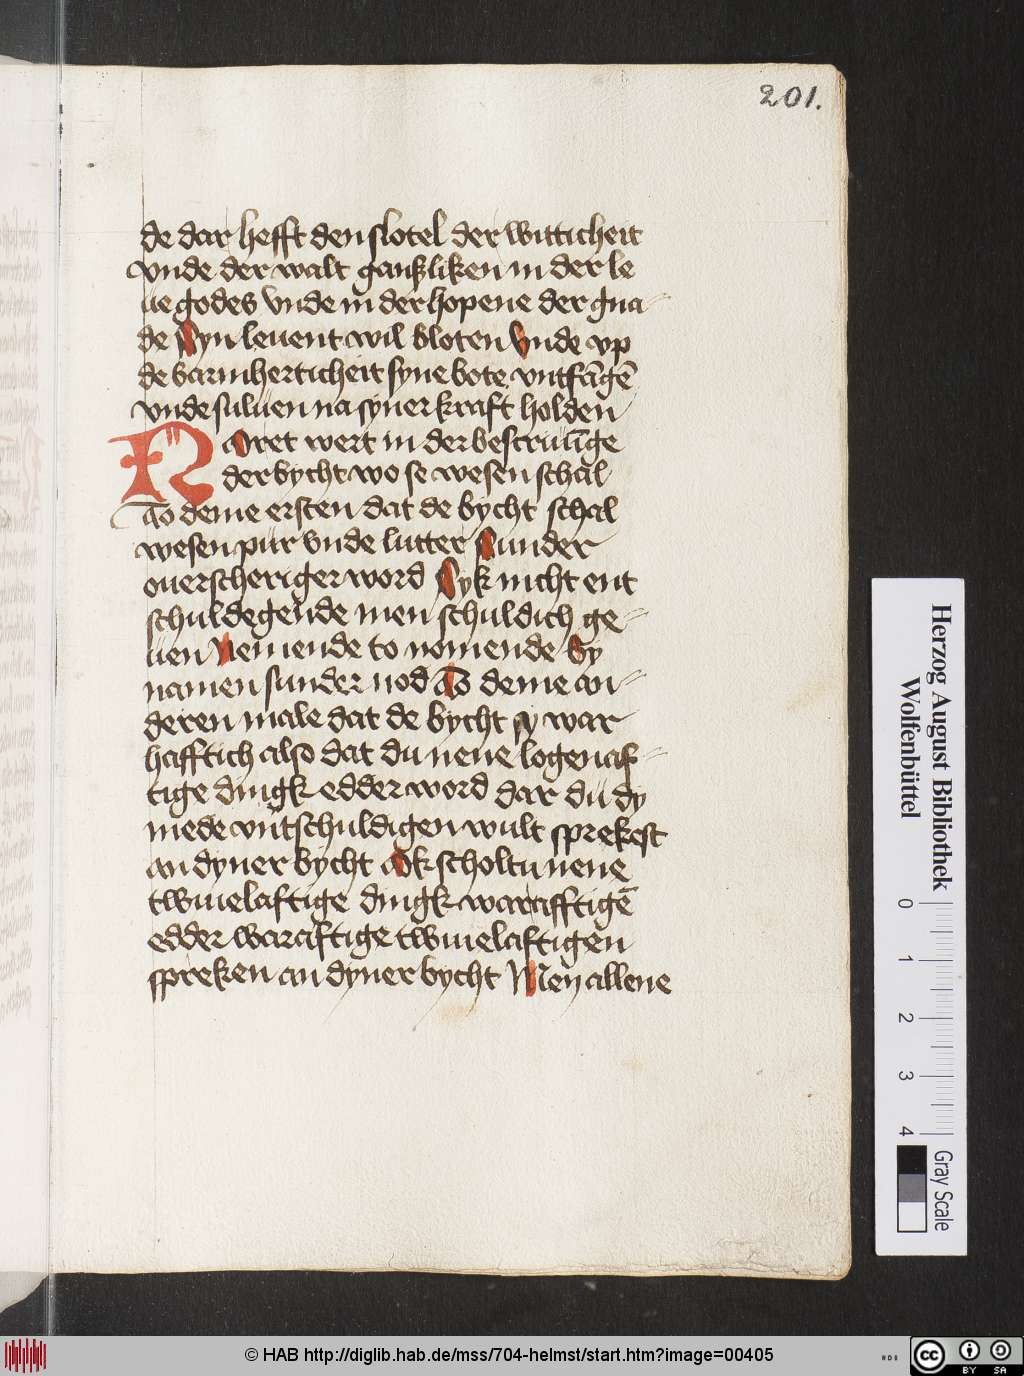 201.
de dar hefft den slotel der witticheit
vnde der walt gantzliken in der le
ue godes vnde in der hopene der gna-
de Syn leuent wil bloten Vnde vp
de barmherticheit syne bote vntfāgē
vnde suluen na syner kraft holden
N Aret wert in der bescriuīge
der bycht wo se wesen schal
To deme ersten dat de bycht schal
wesen pur vnde lutter Sunder
ouerscheriger word Syk nicht ent
schuldegende men schuldich ge-
uen Nemende to nomende By
namen sunder nod To deme an-
deren male dat de bycht sy war
hafftich also dat du nene logenaf-
tige dingk edder word dar du dy
mede vntschuldigen wult sprekest
an dyner bycht Ok scholtu nene
twiuelaftige dingk warafftigē
edder waraftige twiuelaftigen
spreken an dyner bycht Men allene
Herzog August Bibliothek
Wolfenbüttel
0 1 2 3 4
Gray Scale
© HAB http://diglib.hab.de/mss/704-helmst/start.htm?image=00405
HAB
cc BY SA